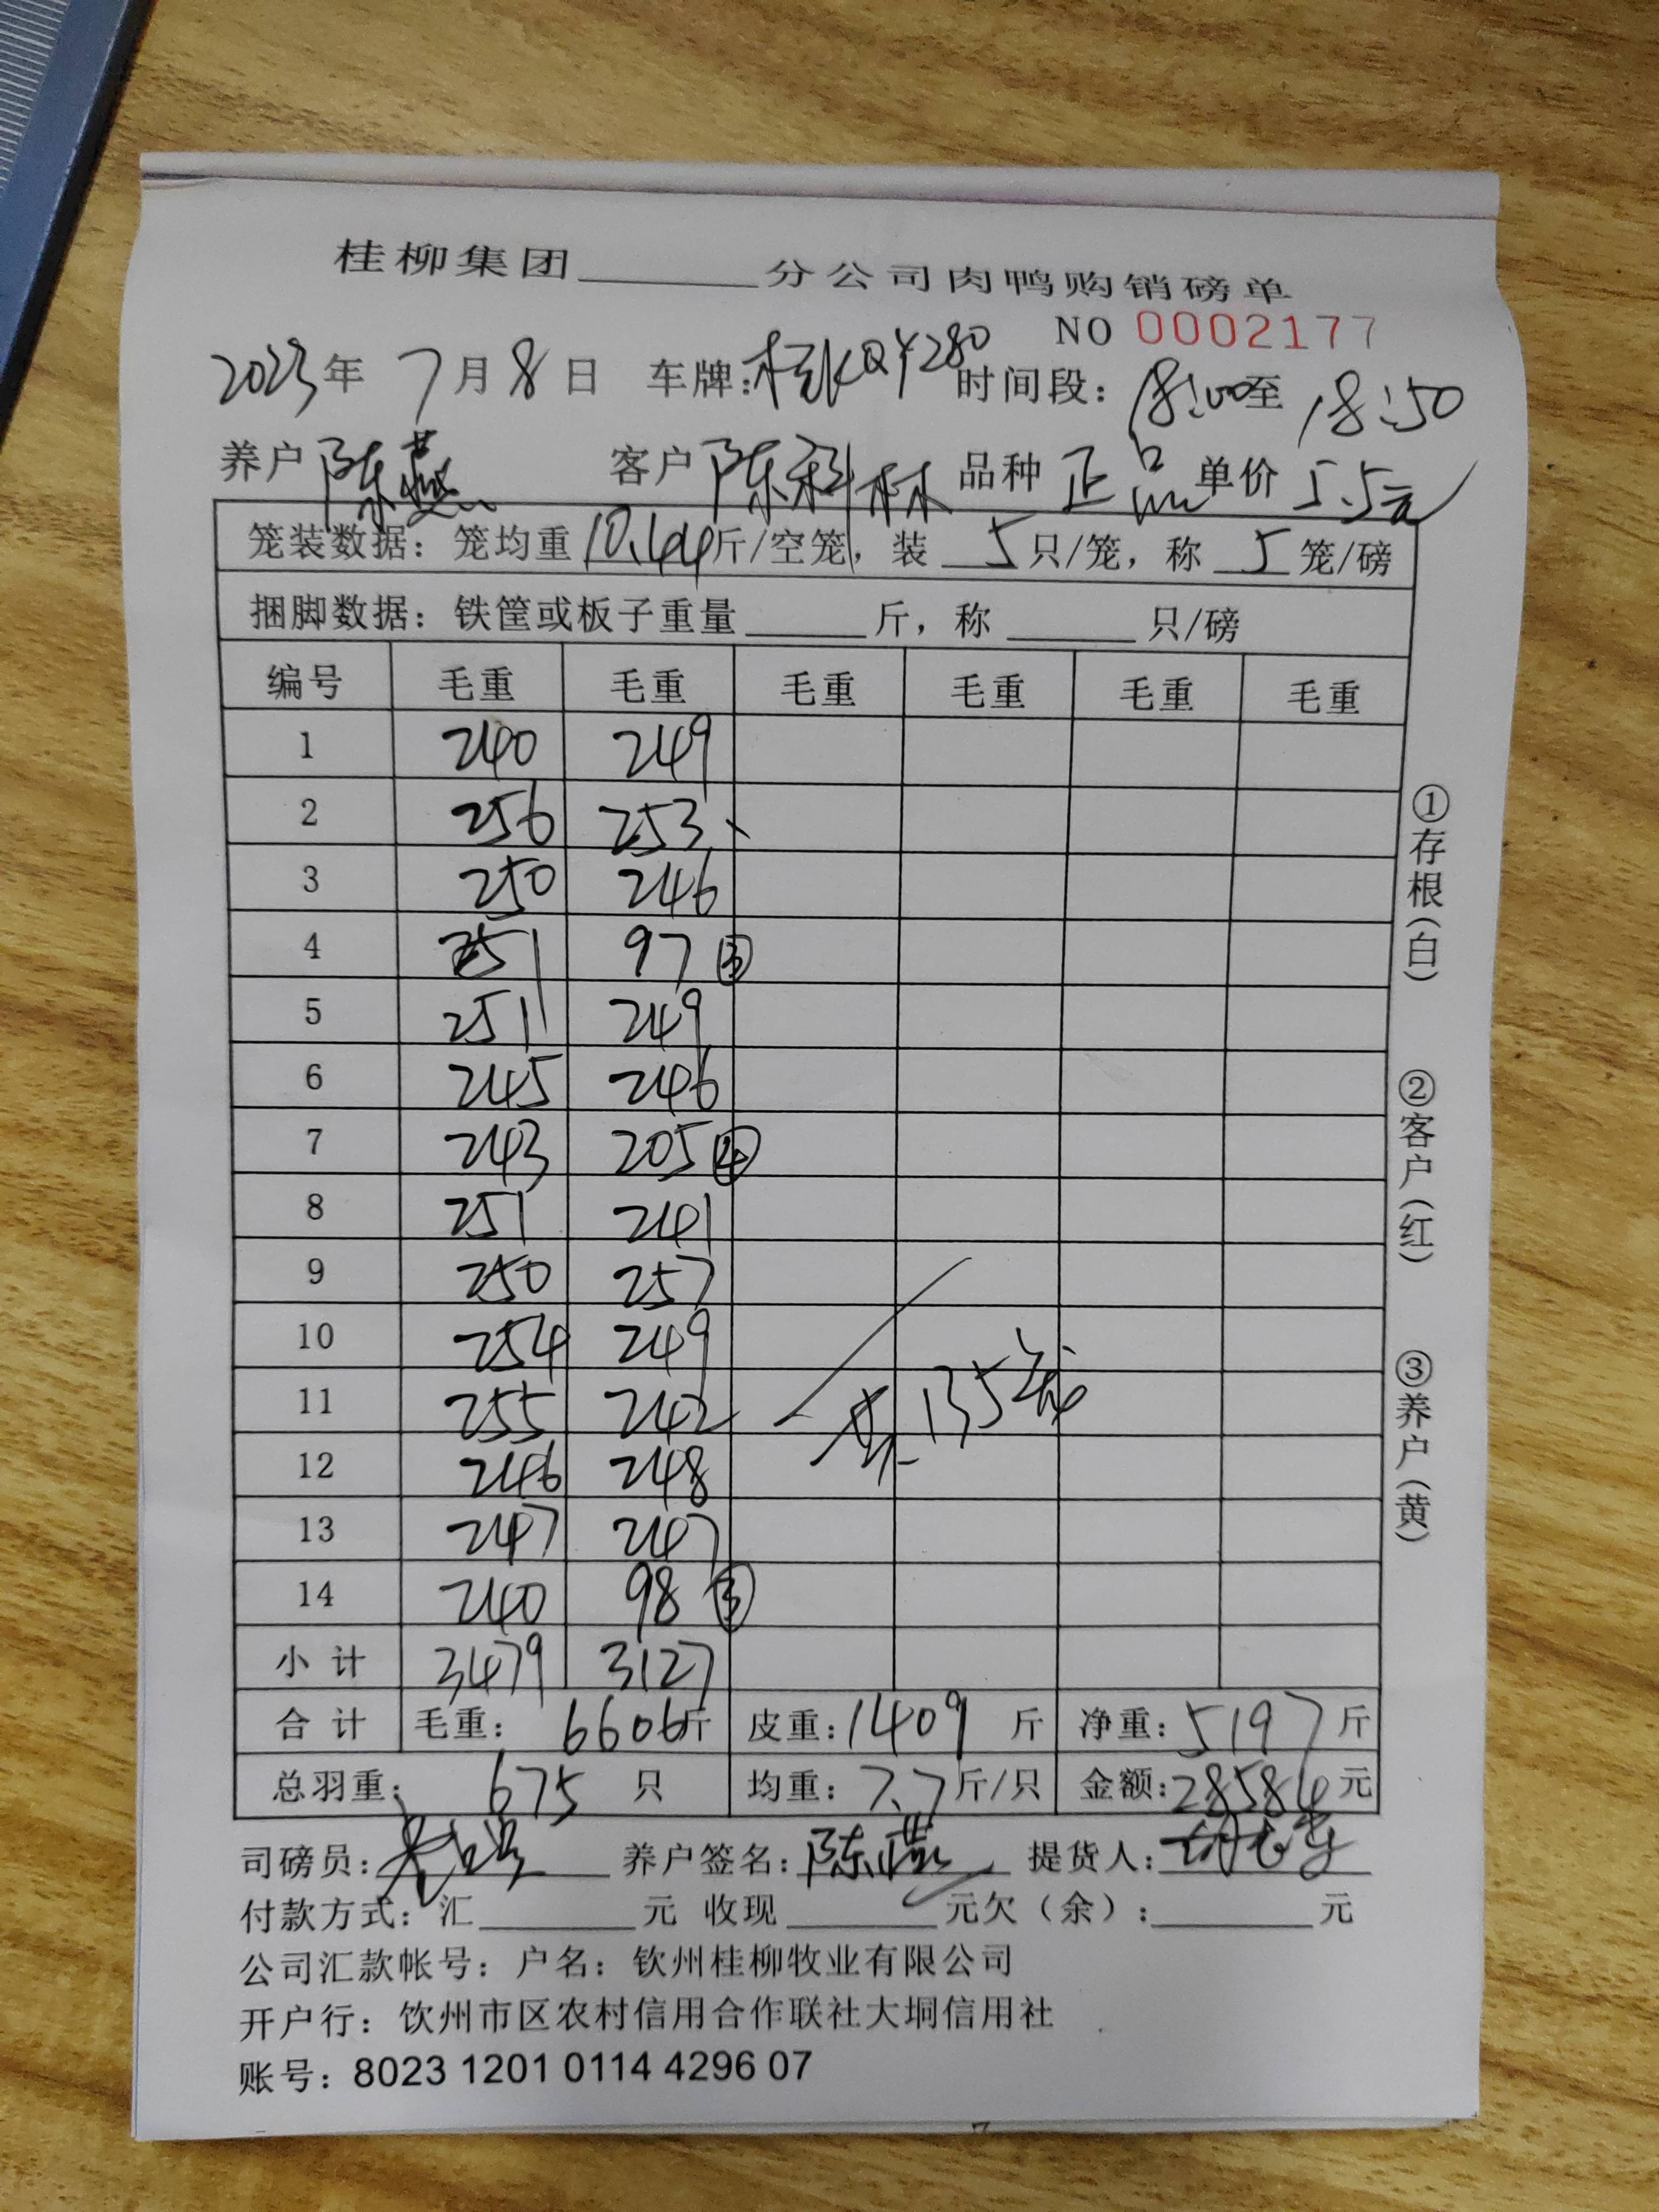 桂柳集团______分公司肉鸭购销磅单
NO 0002177
2023年 7月8日 车牌:桂KQY280 时间段:18:00至18:50
养户 陈燕 客户 陈科林 品种 正品 单价 5.5元
笼装数据:笼均重10.44斤/空笼,装 5 只/笼,称 5 笼/磅
捆脚数据:铁筐或板子重量______斤,称______只/磅
编号 毛重 毛重 毛重 毛重 毛重 毛重
1 240 249
2 256 253
3 250 246
4 251 97 ③
5 251 249
6 245 246
7 243 205 ④
8 251 241
9 250 257
10 254 249
11 255 242
共135笼
12 246 248
13 247 247
14 240 98 ③
小计 3479 3127
合计 毛重: 6606斤 皮重:1409斤 净重:5197斤
总羽重: 675 只 均重:7.7斤/只 金额:28584元
司磅员: 养户签名:陈燕 提货人:
付款方式:汇______元 收现______元欠(余):______元
公司汇款帐号:户名:钦州桂柳牧业有限公司
开户行:钦州市区农村信用合作联社大垌信用社
账号:8023 1201 0114 4296 07
①存根(白)
②客户(红)
③养户(黄)